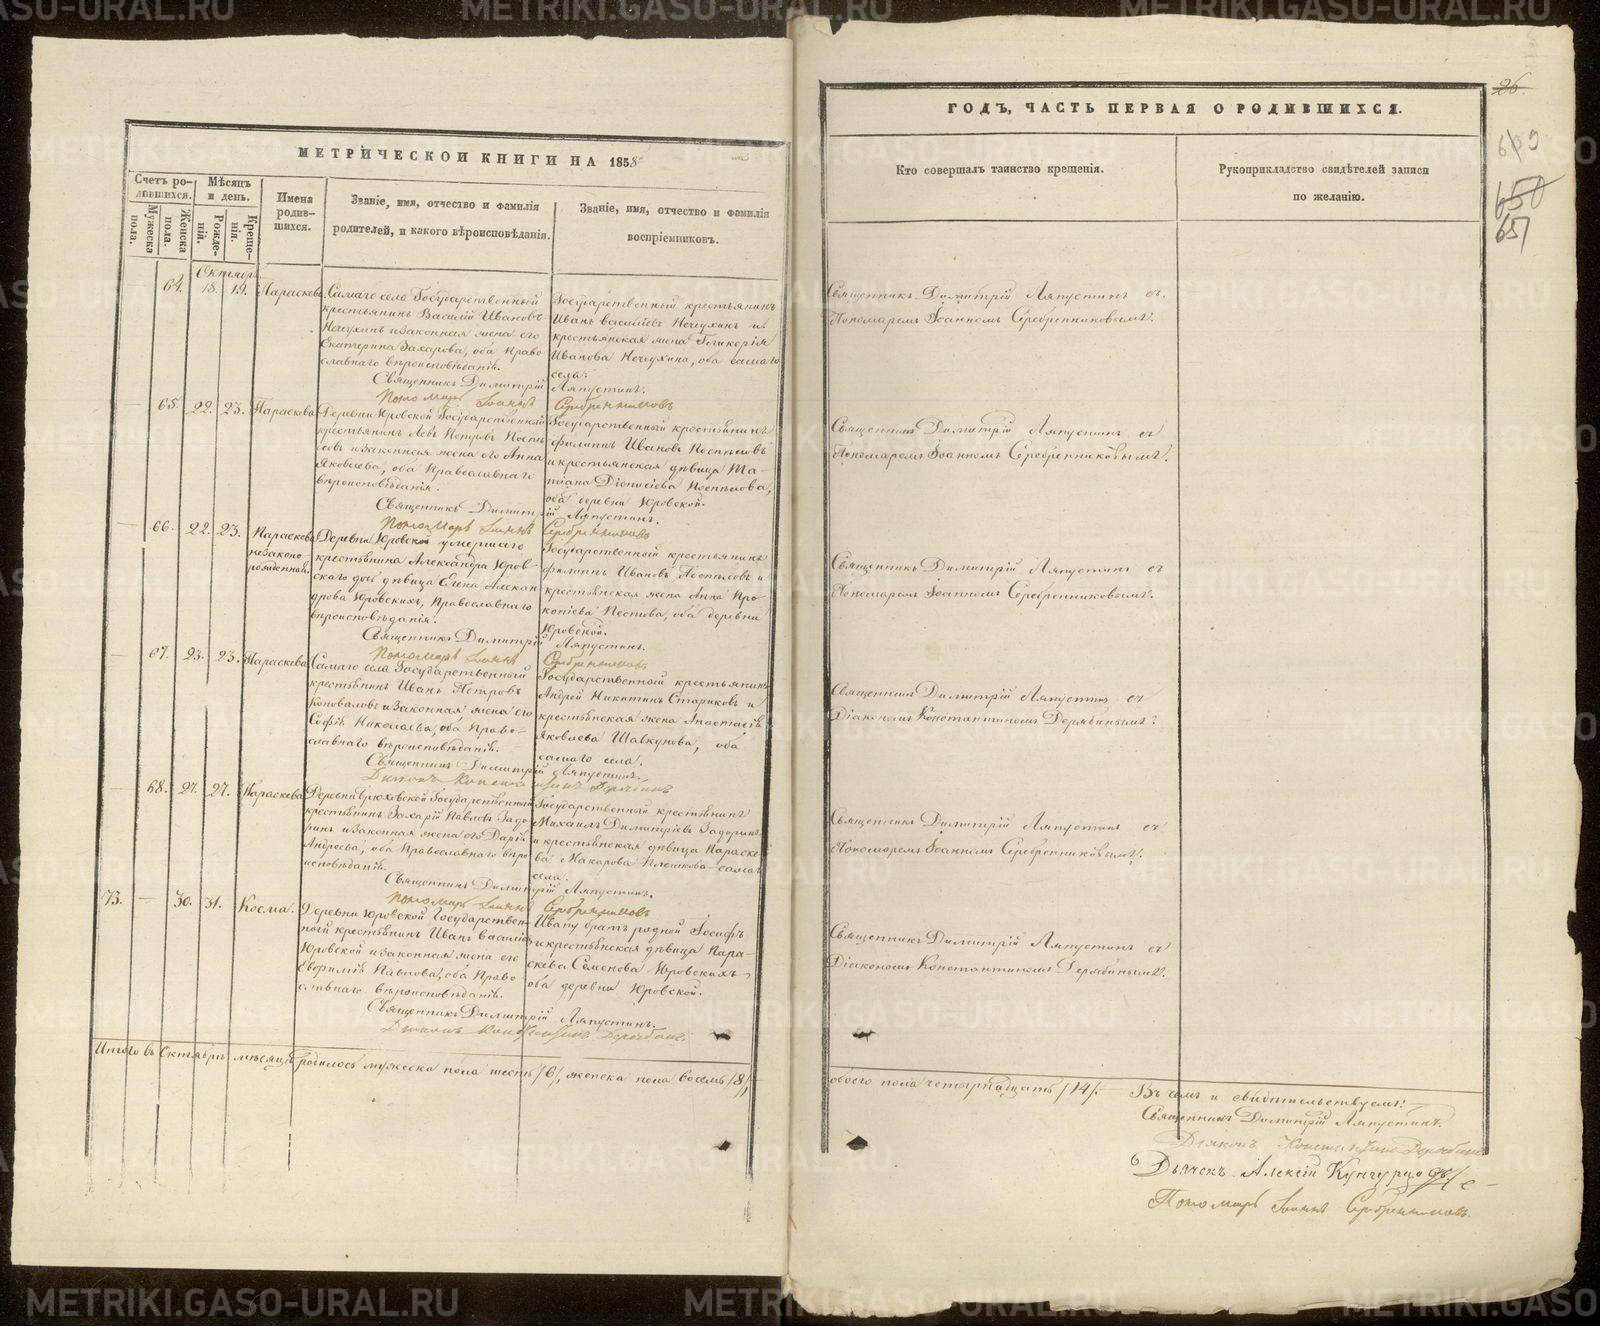 МЕТРИЧЕСКОЙ КНИГИ НА 1858
Счетъ ро-
дившихся.
Мужеска
пола.
Женска
пола.
Мѣсяцъ
и день.
Рожде-
нія.
Креще-
нія.
Имена
родив-
шихся.
Званіе, имя, отчество и фамилія
родителей, и какого вѣроисповѣданія.
Званіе, имя, отчество и фамилія
воспріемниковъ.
Октябрь
64. 18. 19. Параскева
Самаго села Государственный
крестьянинъ Василій Ивановъ
Нечухинъ и законная жена его
Екатерина Захарова, оба Право-
славнаго вѣроисповѣданія.
Государственный крестьянинъ
Иванъ Васильевъ Нечухинъ и
крестьянская жена Гликерія
Иванова Нечухина, оба самаго
села.
Священникъ Димитрій Ляпустинъ.
Пономарь Іоаннъ Серебренниковъ
— 65. 22. 23. Параскева
Деревни Юровской Государственный
крестьянинъ Левъ Петровъ Поспѣ
ловъ и законная жена его Анна
Яковлева, оба Православнаго
вѣроисповѣданія.
Государственный крестьянинъ
Филиппъ Ивановъ Поспѣловъ
и крестьянская дѣвица Та-
тіана Діонисіева Поспѣлова,
оба деревни Юровской.
Священникъ Димитрій Ляпустинъ.
Пономарь Іоаннъ Серебренниковъ
— 66. 22. 23. Параскева
незаконо-
рожденной.
Деревни Юровской умершаго
крестьянина Александра Юров-
скаго дочь дѣвица Елена Алексан
дрова Юровскихъ, Православнаго
вѣроисповѣданія.
Государственный крестьянинъ
Филиппъ Ивановъ Поспѣловъ и
крестьянская жена Анна Про-
копіева Пестова, оба деревни
Юровской.
Священникъ Димитрій Ляпустинъ.
Пономарь Іоаннъ Серебренниковъ
— 67. 23. 23. Параскева
Самаго села Государственный
крестьянинъ Иванъ Петровъ
Коноваловъ и законная жена его
Софія Николаева, оба Право-
славнаго вѣроисповѣданія.
Государственный крестьянинъ
Андрей Никитинъ Стариковъ и
крестьянская жена Анастасія
Яковлева Шавкунова, оба
самаго села.
Священникъ Димитрій Ляпустинъ.
Діаконъ Константинъ Дерябинъ
— 68. 27. 27. Параскева
Государственный
крестьянинъ Захарій Павловъ Задо-
ринъ и законная жена его Дарія
Андреева, оба Православнаго вѣро
исповѣданія.
Государственный крестьянинъ
Михаилъ Димитріевъ Задоринъ
и крестьянская дѣвица Параске-
ва Макарова самаго
села.
Священникъ Димитрій Ляпустинъ.
Пономарь Іоаннъ Серебренниковъ
73. — 30. 31. Косма.
Деревни Юровской Государствен-
ной крестьянинъ Иванъ Василіевъ
Юровской и законная жена его
Евфимія Павлова, оба Право-
славнаго вѣроисповѣданія.
Ивану братъ родной Іосифъ
и крестьянская дѣвица Пара-
скева Семенова Юровскихъ
оба деревни Юровской.
Священникъ Димитрій Ляпустинъ.
Діаконъ Константинъ Дерябинъ
Итого въ Октябрѣ мѣсяцѣ родилось мужеска пола шесть /6/, женска пола восемь /8/,
ГОДЪ, ЧАСТЬ ПЕРВАЯ О РОДИВШИХСЯ.
26.
650
651
Кто совершалъ таинство крещенія.
Рукоприкладство свидѣтелей записи
по желанію.
Священникъ Димитрій Ляпустинъ съ
Пономаремъ Іоанномъ Серебренниковымъ.
Священникъ Димитрій Ляпустинъ съ
Пономаремъ Іоанномъ Серебренниковымъ.
Священникъ Димитрій Ляпустинъ съ
Пономаремъ Іоанномъ Серебренниковымъ.
Священникъ Димитрій Ляпустинъ съ
Діакономъ Константиномъ Дерябинымъ.
Священникъ Димитрій Ляпустинъ съ
Пономаремъ Іоанномъ Серебренниковымъ.
Священникъ Димитрій Ляпустинъ съ
Діакономъ Константиномъ Дерябинымъ.
обоего пола четырнадцать /14/. —
Въ чемъ и свидѣтельствуемъ:
Священникъ Димитрій Ляпустинъ.
Діаконъ Константинъ Дерябинъ
Дьячекъ Алексій
Пономарь Іоаннъ Серебренниковъ.
METRIKI.GASO-URAL.RU